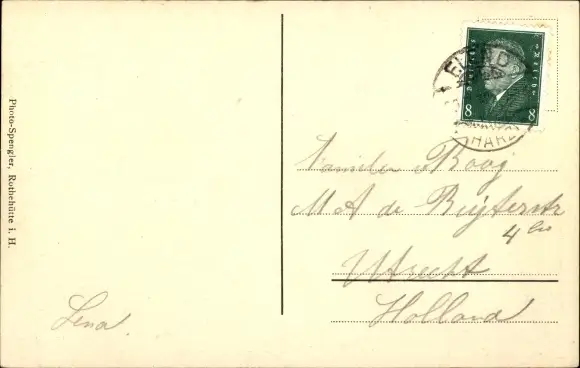 Photo-Spengler, Rotbehütte i. H.
Lena
Deutsches Reich
8 8
ELEND
HARZ
Familie v Rooy
M A de Ruijterstr
4 bis
Utrecht
Holland